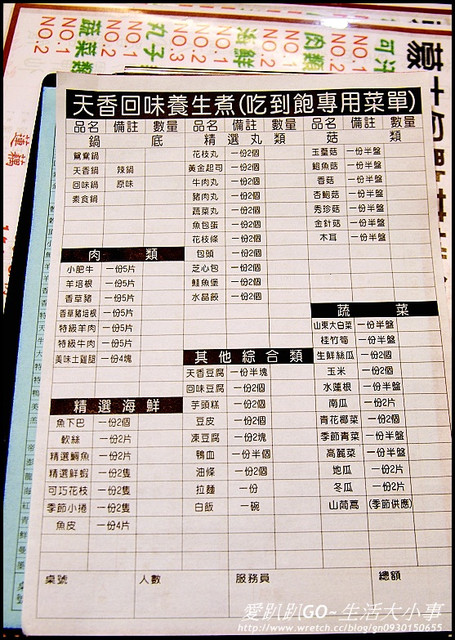 天香回味養生煮(吃到飽專用菜單)
品名 備註 數量 品名 備註 數量 品名 備註 數量
鍋 底 精選丸類 菇 類
鴛鴦鍋 花枝丸 一份2個 玉蕈菇 一份半盤
天香鍋 辣鍋 黃金起司 一份2個 鮑魚菇 一份半盤
回味鍋 原味 牛肉丸 一份2個 香菇 一份半盤
素食鍋 豬肉丸 一份2個 杏鮑菇 一份半盤
蔬菜丸 一份2個 秀珍菇 一份半盤
魚包蛋 一份2個 金針菇 一份半盤
花枝條 一份2個 木耳 一份半盤
肉 類 包頭 一份2個
小肥牛 一份5片 芝心包 一份2個
羊培根 一份5片 鮭魚堡 一份2個
香草豬 一份5片 水晶餃 一份2個
香草豬培根 一份5片 蔬 菜
特級羊肉 一份5片 山東大白菜 一份半盤
特級牛肉 一份5片 桂竹筍 一份半盤
美味土雞腿 一份4塊 其他綜合類 生鮮絲瓜 一份2個
天香豆腐 一份半塊 玉米 一份2個
回味豆腐 一份2個 水蓮根 一份半盤
精選海鮮 芋頭糕 一份2個 南瓜 一份2片
魚下巴 一份2個 豆皮 一份2個 青花椰菜 一份2個
軟絲 一份2片 凍豆腐 一份2塊 季節青菜 一份半盤
精選鯛魚 一份2片 鴨血 一份半個 高麗菜 一份半盤
精選鮮蝦 一份2隻 油條 一份2個 地瓜 一份2片
可巧花枝 一份2隻 拉麵 一份 冬瓜 一份2片
季節小捲 一份2隻 白飯 一碗 山茼萵 (季節供應)
魚皮 一份4片
桌號 人數 服務員 總額
愛趴趴GO~生活大小事
http://www.wretch.cc/blog/gn0930150655